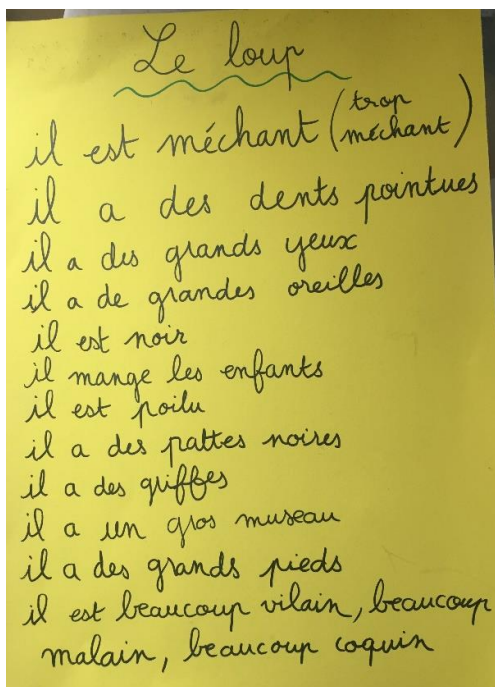 Le loup
il est méchant (trop méchant)
il a des dents pointues
il a des grands yeux
il a de grandes oreilles
il est noir
il mange les enfants
il est poilu
il a des pattes noires
il a des griffes
il a un gros museau
il a des grands pieds
il est beaucoup vilain, beaucoup
malain, beaucoup coquin